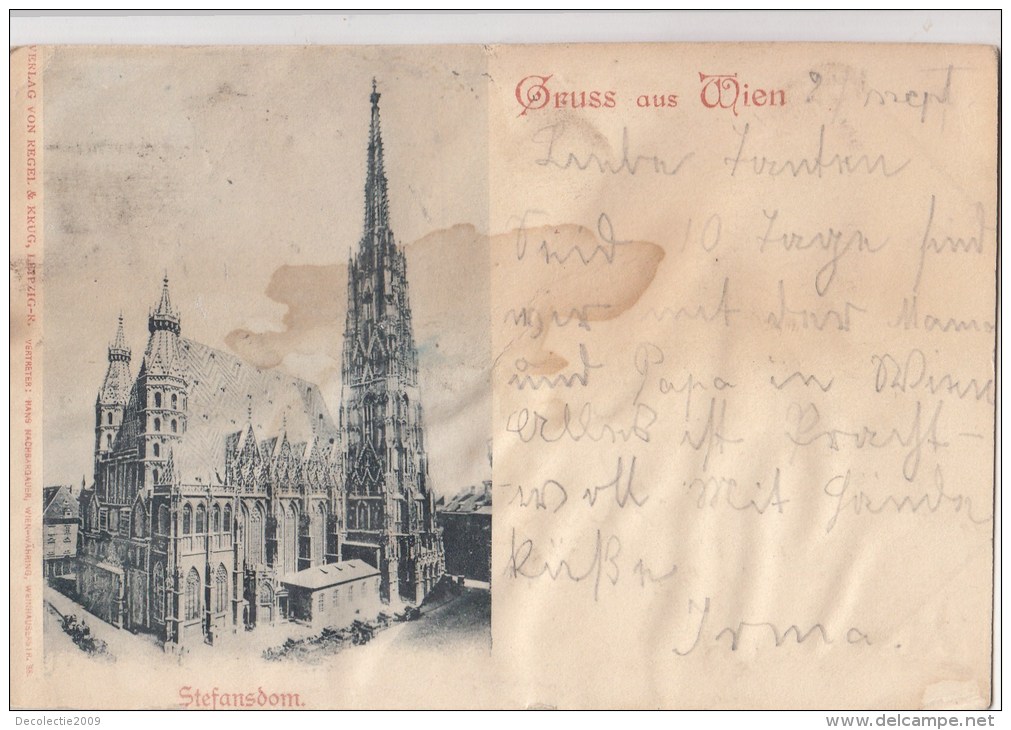 VERLAG VON REGEL & KRUG, LEIPZIG-R. VERTRETER: HANS NACHBARGAUER, WIEN-WÄHRING,
Gruss aus Wien 2/ Sept
Liebe Tanten
Seid 10 Tage sind
wir mit der Mama
und Papa in Wien
Alles ist Pracht-
woll Mit Hände
küße
Irma.
Stefansdom.
Decolectie2009
www.delcampe.net